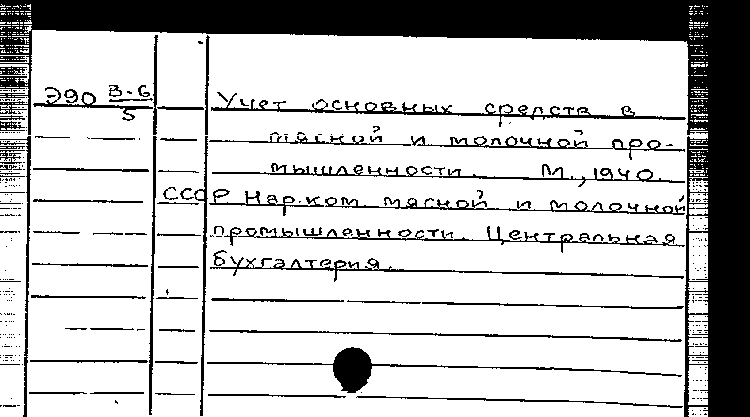 Э90 В-6/5
Учет основных средств в
мясной и молочной про-
мышленности. М., 1940.
СССР Нар.ком. мясной и молочной
промышленности. Центральная
бухгалтерия.